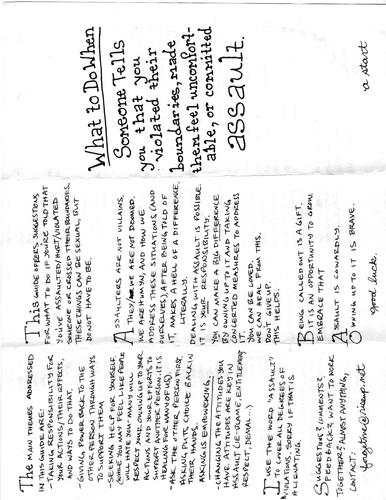 The main themes addressed
in this guide are:
- taking responsibility for
your actions/their effects,
& ways to do that
- giving power back to the
other person through ways
to support them
- seeking help for yourself
(while you may feel like people
will hate you, many will
respect your owning up to your
actions and your efforts to
support the person; it is
healing for many of us)
- ask the other person first,
puts choice back in
their hands.
Asking is empowering.
- changing the attitudes you
have. Attitudes are key in
assault (ie-blame, entitlement,
respect, denial...)
I use the word "assault"
to cover all degrees of
violations. Sorry if that is
alienating.
Suggestions? Comments?
Feedback? Want to work
together? Almost anything,
contact:
This guide offers suggestions
for what to do if you're told that
you've assaulted/hurt/violated
someone or crossed their boundaries.
These things can be sexual, but
do not have to be.
Assaulters are not villains,
they/we are not doomed.
How we are now, and how we
address these situations (and
ourselves), after being told of
it, makes a hell of a difference,
literally.
Dealing with assault is possible.
It is your responsibility.
You can make a big difference
by owning up to it and taking
concerted measures to address
it.
You can be loved.
We can heal from this.
Don't give up.
This helps.
Being called out is a gift.
It is an opportunity to grow.
Embrace that.
Assault is cowardly.
Owning up to it is brave.
good luck.
What to Do When
Someone Tells
you that you
violated their
boundaries, made
them feel uncomfort-
able, or committed
assault.
a start